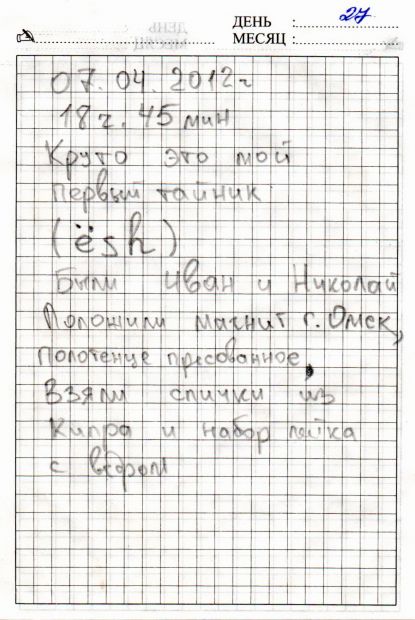 ДЕНЬ : 27
МЕСЯЦ :
07. 04. 2012г
18 ч. 45 мин
Круто это мой
Первый тайник
(ёsh)
Были Иван и Николай
Положили магнит г. Омск,
Полотенце пресованное,
Взяли спички из
Кипра и набор лейка
с ведром